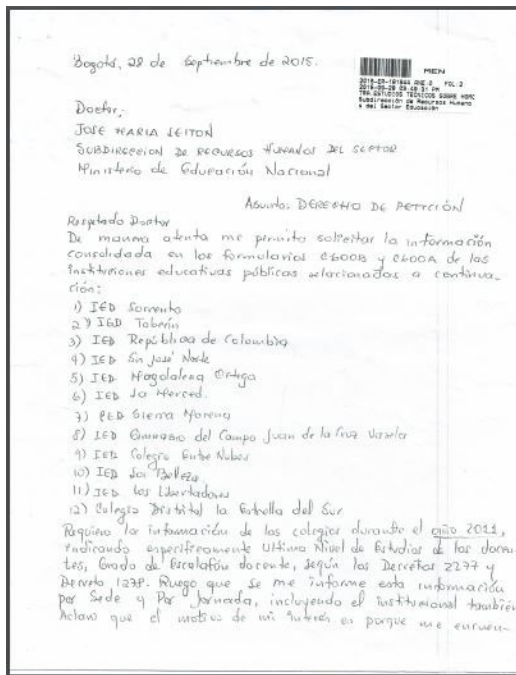 Bogotá, 28 de Septiembre de 2015.
MEN
FOL:2
Subdirección de Recursos Humano
s del Sector Educación
Doctor;
JOSE MARIA LEITON
SUBDIRECCION DE RECURSOS HUMANOS DEL SECTOR
Ministerio de Educación Nacional
Asunto: DERECHO DE PETICIÓN
Respetado Doctor
De manera atenta me permito solicitar la información
consolidada en los formularios C600B y C600A de las
instituciones educativas públicas relacionadas a continua-
ción:
1) IED Sorrento
2) IED Toberín
3) IED República de Colombia
4) IED Sn José Norte
5) IED Magdalena Ortega
6) IED La Merced.
7) CED Sierra Morena
8) IED Gimnasio del Campo Juan de la Cruz Varela
9) IED Colegio Entre Nubes
10) IED La Belleza
11) IED Los Libertadores
12) Colegio Distrital la Estrella del Sur
Requiero la información de los colegios durante el año 2011,
indicando específicamente Ultimo Nivel de Estudios de los docen-
tes, Grado de Escalafón docente, según los Decretos 2277 y
Decreto 1278. Ruego que se me informe esta información
por Sede y Por Jornada, incluyendo el institucional también
Aclaro que el motivo de mi interés es porque me encuen-